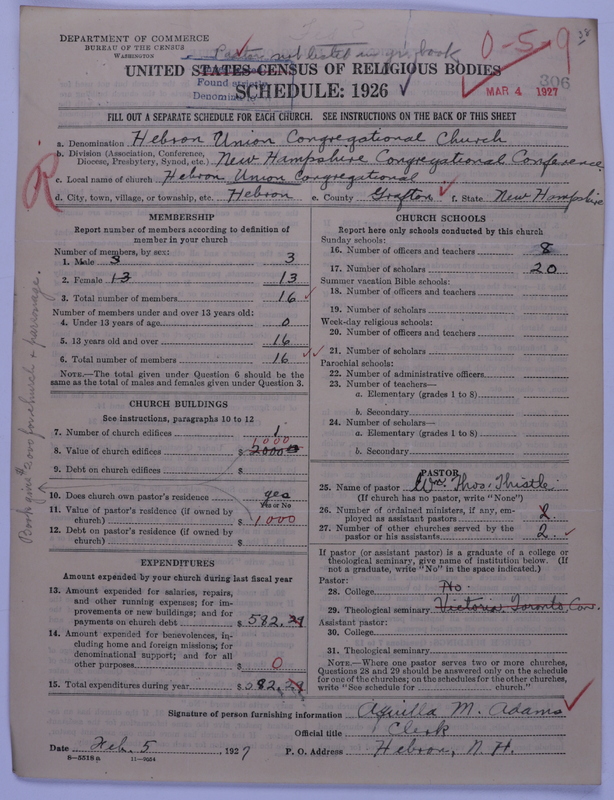 DEPARTMENT OF COMMERCE
BUREAU OF THE CENSUS
WASHINGTON
Pastor not listed in yr. book
0-5-9
38
UNITED STATES CENSUS OF RELIGIOUS BODIES
Found
Denomi
SCHEDULE: 1926
MAR 4 1927
306
FILL OUT A SEPARATE SCHEDULE FOR EACH CHURCH. SEE INSTRUCTIONS ON THE BACK OF THIS SHEET
a. Denomination Hebron Union Congregational Church
b. Division (Association, Conference, Diocese, Presbytery, Synod, etc.) New Hampshire Congregational Conference
c. Local name of church Hebron Union Congregational
d. City, town, village, or township, etc. Hebron e. County Grafton f. State New Hampshire
R
MEMBERSHIP
Report number of members according to definition of
member in your church
Number of members, by sex:
1. Male 3 3
2. Female 13 13
3. Total number of members 16
Number of members under and over 13 years old:
4. Under 13 years of age 0
5. 13 years old and over 16
6. Total number of members 16
NOTE.—The total given under Question 6 should be
same as the total of males and females given under Question 3.
CHURCH BUILDINGS
See instructions, paragraphs 10 to 12
7. Number of church edifices 1
1000
8. Value of church edifices $ 2000
9. Debt on church edifices $
10. Does church own pastor's residence yes
Yes or No
11. Value of pastor's residence (if owned by
church) $ 1000
12. Debt on pastor's residence (if owned by
church) $
Book give $2000 for church & parsonage.
EXPENDITURES
Amount expended by your church during last fiscal year
13. Amount expended for salaries, repairs,
and other running expenses; for im-
provements or new buildings; and for
payments on church debt $ 582.24
14. Amount expended for benevolences, in-
cluding home and foreign missions; for
denominational support; and for all
other purposes $ 0
15. Total expenditures during year $ 582.24
CHURCH SCHOOLS
Report here only schools conducted by this church
Sunday schools:
16. Number of officers and teachers 8
17. Number of scholars 20
Summer vacation Bible schools:
18. Number of officers and teachers
19. Number of scholars
Week-day religious schools:
20. Number of officers and teachers
21. Number of scholars
Parochial schools:
22. Number of administrative officers
23. Number of teachers—
a. Elementary (grades 1 to 8)
b. Secondary
24. Number of scholars—
a. Elementary (grades 1 to 8)
b. Secondary
PASTOR
25. Name of pastor Wm. Thos. Thistle
(If church has no pastor, write "None")
26. Number of ordained ministers, if any, em-
ployed as assistant pastors
27. Number of other churches served by the
pastor or his assistants 2
If pastor (or assistant pastor) is a graduate of a college or
theological seminary, give name of institution below. (If
not a graduate, write "No" in the space indicated.)
Pastor:
28. College No
29. Theological seminary Victoria Toronto, Can.
Assistant pastor:
30. College
31. Theological seminary
NOTE.—Where one pastor serves two or more churches,
Questions 28 and 29 should be answered only on the schedule
for one of the churches; on the schedules for the other churches,
write "See schedule for church."
Signature of person furnishing information Aquilla M. Adams
Official title Clerk
Date Feb. 5, 1927 P. O. Address Hebron, N. H.
8—5518 a 11—9054